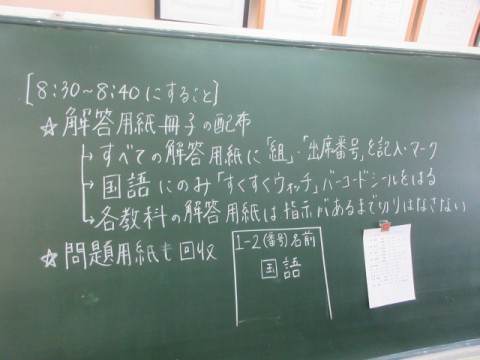 [8:30~8:40にすること]
☆解答用紙冊子の配布
→すべての解答用紙に「組」・「出席番号」を記入・マーク
→国語にのみ「すくすくウォッチ」バーコードシールをはる
→各教科の解答用紙は指示があるまで切りはなさない
☆問題用紙も回収
1-2(番号)名前
国語